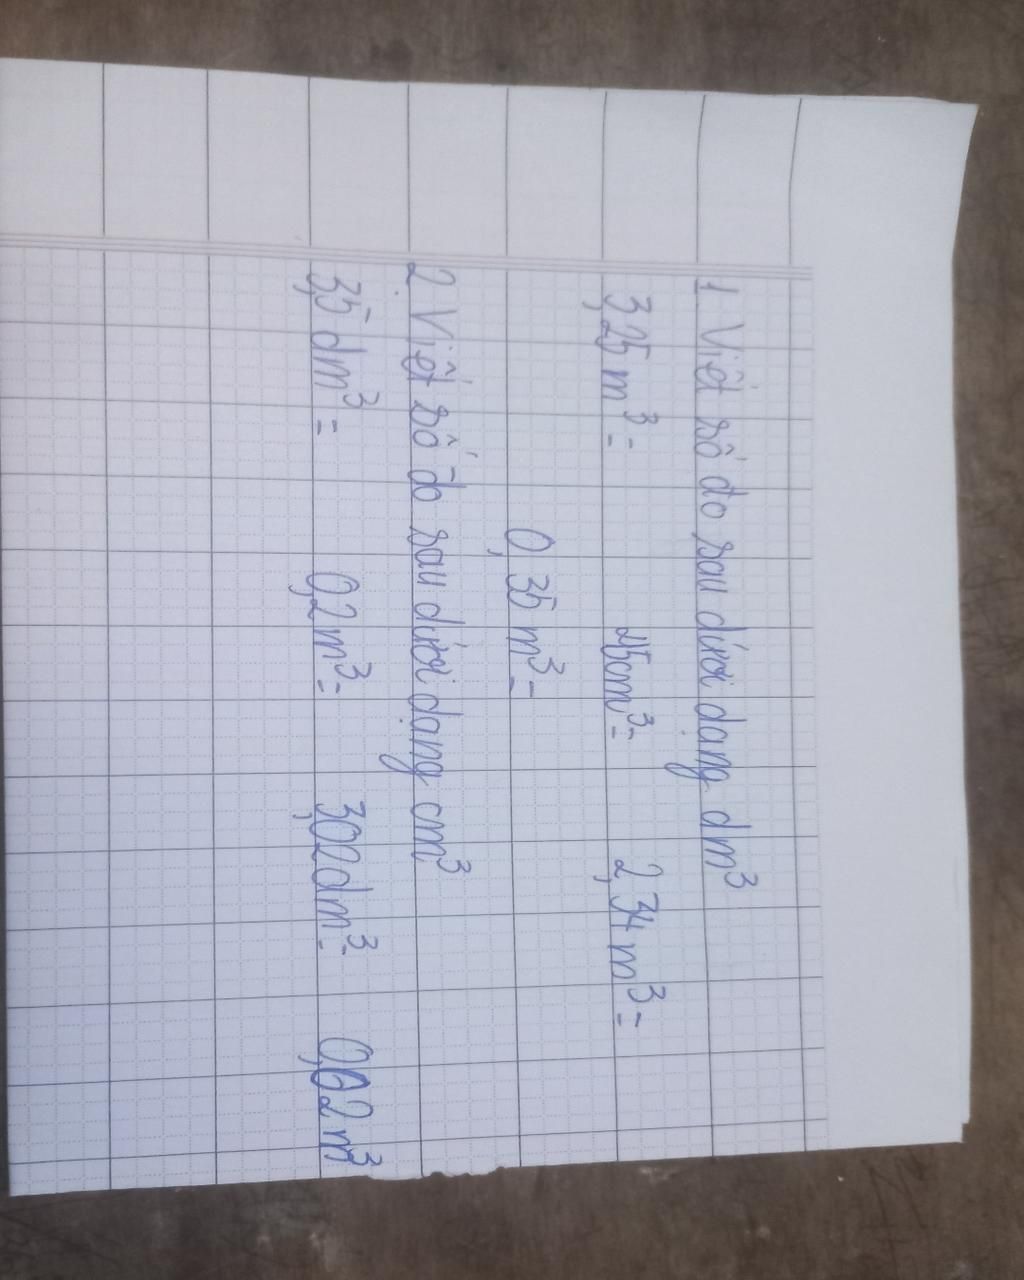 1 Viết số đo sau dưới dạng dm³
3,25 m³ = 45cm³ = 2,34 m³ =
0,35 m³ =
2. Viết số đo sau dưới dạng cm³
3,5 dm³ = 0,2 m³ = 3,02dm³ = 0,02 m³